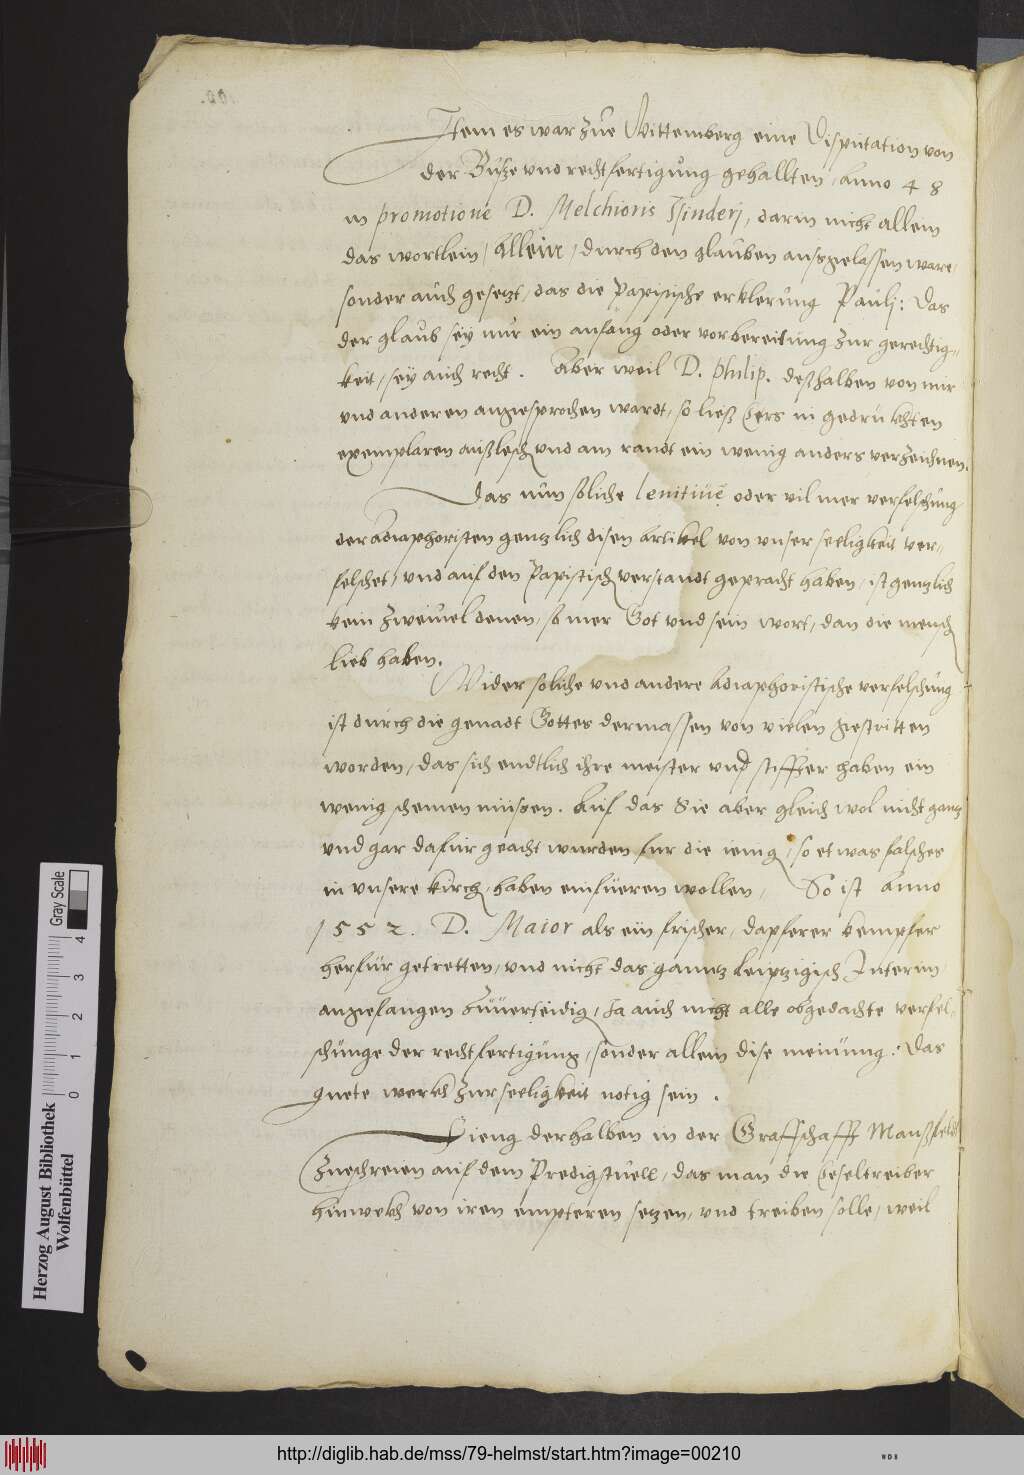 Item es war zue Wittemberg eine Disputation von
der Busze und rechtfertigung gehallten, anno 48
in promotione D. Melchioris Isinderj, darin nicht allein
das wortlein / Allein / durch den glauben ausgelassen ware,
sonder auch gesetzt, das die Papistische erklerung Paulj: Das
der glaub sey nur ein anfang oder vorbereitung zur gerechtig=
keit, sey auch recht. Aber weil D. Philip. deßhalben von mir
und anderen angesprochen wardt, so ließ Ers in gedrukhten
exemplaren außlesch und am randt ein wenig anders verzeichnen.
Das nun soliche lenitiue oder vil mer verfelschung
der Adiaphoristen gentzlich disen Artikel von unser seeligkeit ver=
felschet, und auf den Papistisch verstandt gepracht haben, ist gentzlich
kein zweiuel denen, so mer Got und sein wort, dan die mensch
lieb haben.
Wider soliche und andere Adiaphoristische verfelschung
ist durch die genadt Gottes dermassen von vielen gestritten
worden, das sich endtlich ihre meister und stiffter haben ein
wenig schemen müssen. Auf das Sie aber gleich wol nicht gantz
und gar dafür geacht wurden fur die ienig, so etwas falsches
in unsere kirch haben einfüeren wollen, So ist anno
1552. D. Maior als ein frischer, dapferer kempfer
herfür getretten, und nicht das gantz Leiptzigisch Interim
angefangen zuuerteidig, Ja auch nicht alle obgedachte verfel=
schunge der rechtfertigung, sonder allein dise meinung: Das
guete werkh zur seeligkeit notig sein.
Fieng derhalben in der Graffschafft Manßfeldt
zueschreien auf dem Predigstuell, das man die Eseltreiber
hinwekh von iren empteren setzen, und treiben solle, weil
Herzog August Bibliothek
Wolfenbüttel
Gray Scale
0 1 2 3 4
http://diglib.hab.de/mss/79-helmst/start.htm?image=00210